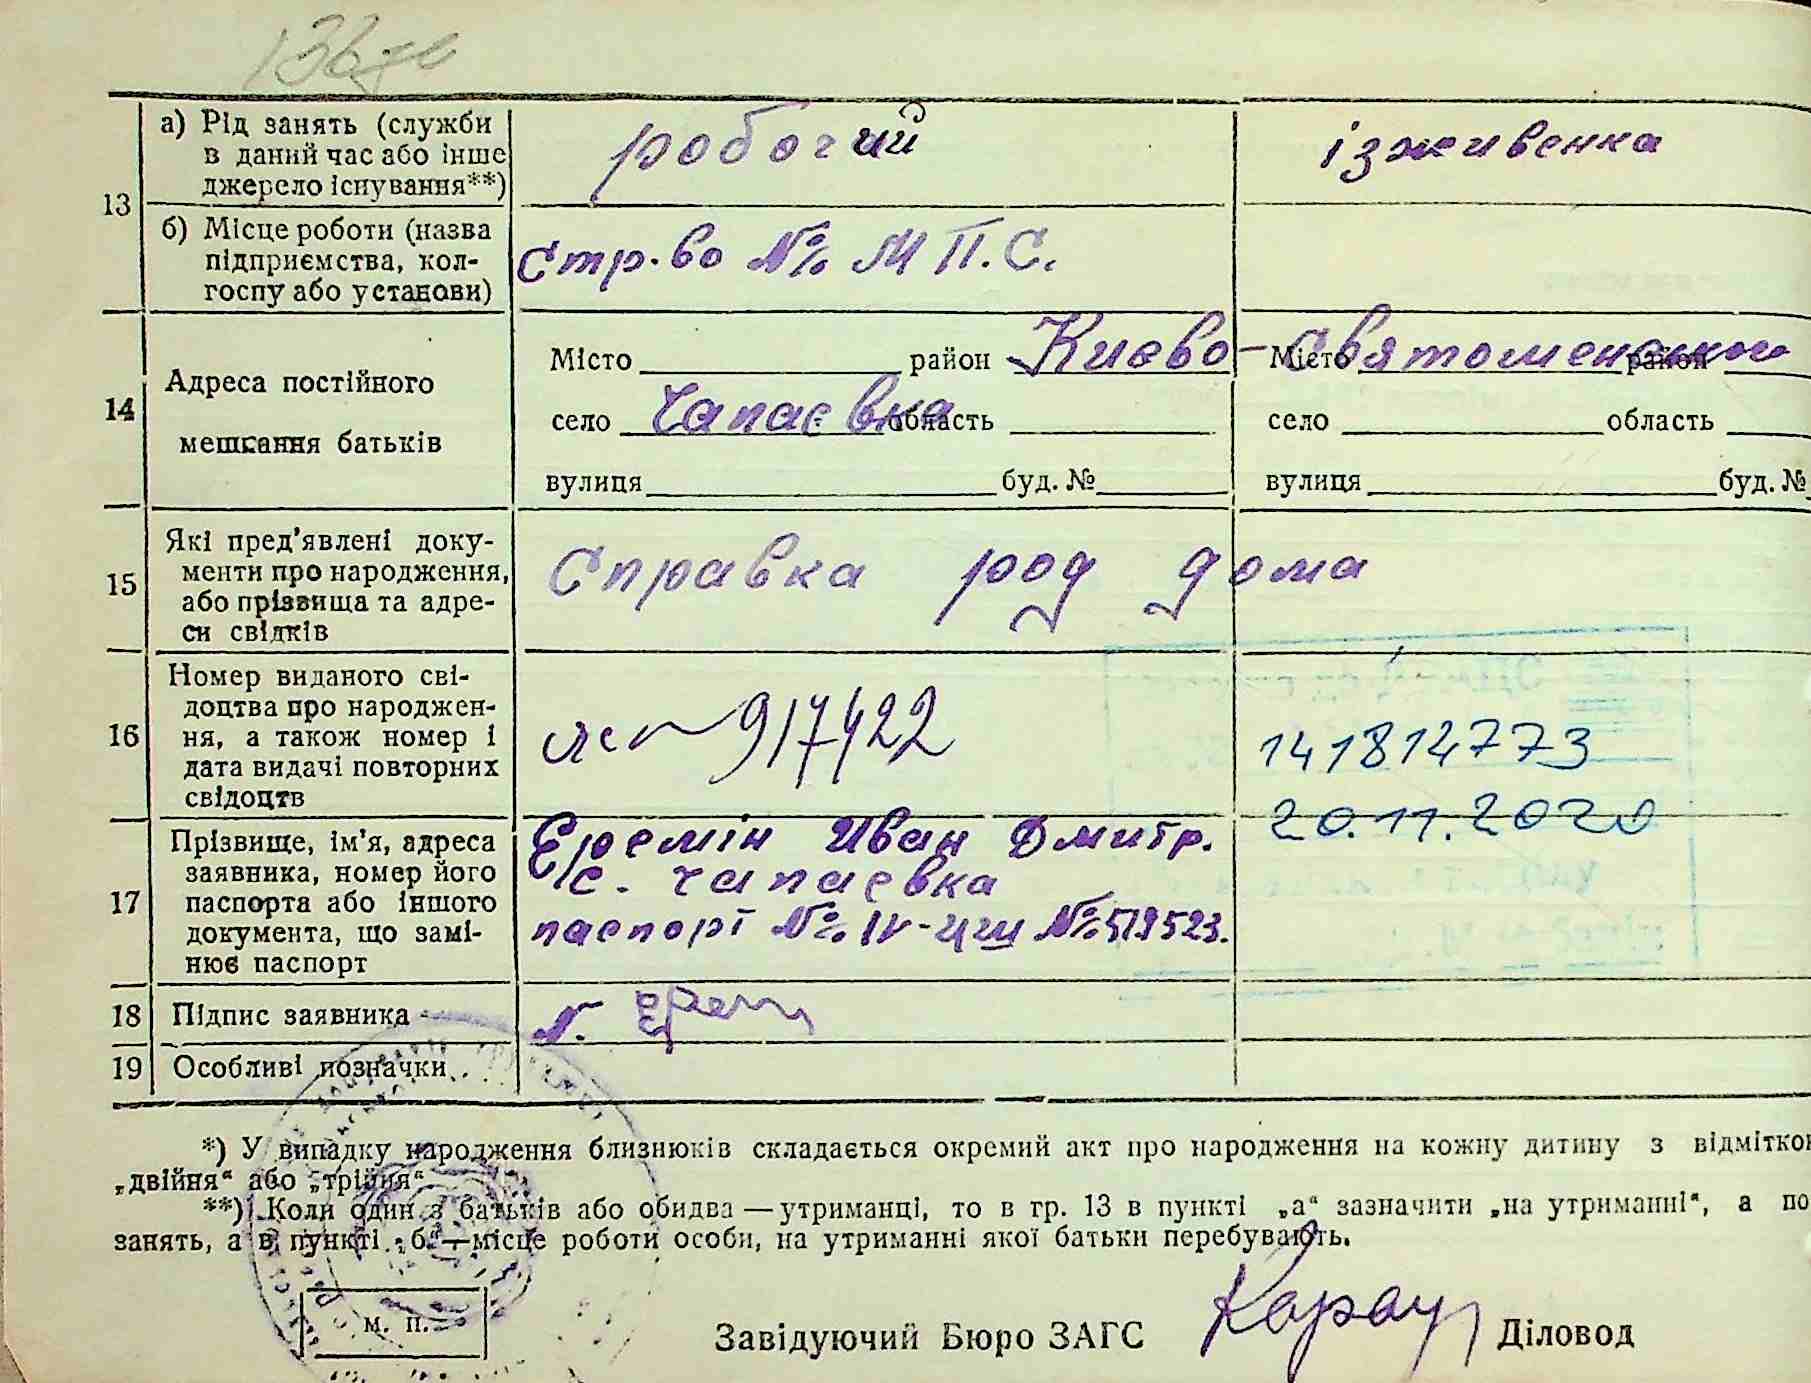 13
а) Рід занять (служби
в даний час або інше
джерело існування**)
робочий
іждивенка
б) Місце роботи (назва
підприємства, кол-
госпу або установи)
Стр-во № МП.С.
14
Адреса постійного
мешкання батьків
Місто район Києво-Святошенського
село Чапаєвка область
вулиця буд. №
Місто район
село область
вулиця буд. №
15
Які пред'явлені доку-
менти про народження,
або прізвища та адре-
си свідків
Справка род дома
16
Номер виданого сві-
доцтва про народжен-
ня, а також номер і
дата видачі повторних
свідоцтв
917422
141812773
20.11.2020
17
Прізвище, ім'я, адреса
заявника, номер його
паспорта або іншого
документа, що замі-
нює паспорт
Еремін Иван Дмитр.
с. Чапаевка
паспорт № IV-
18
Підпис заявника
19
Особливі позначки
*) У випадку народження близнюків складається окремий акт про народження на кожну дитину з відміткою
„двійня“ або „трійня“
**) Коли один з батьків або обидва — утриманці, то в гр. 13 в пункті „а“ зазначити „на утриманні“, а по
занять, а в пункті „б“ — місце роботи особи, на утриманні якої батьки перебувають.
м. п.
Завідуючий Бюро ЗАГС
Діловод